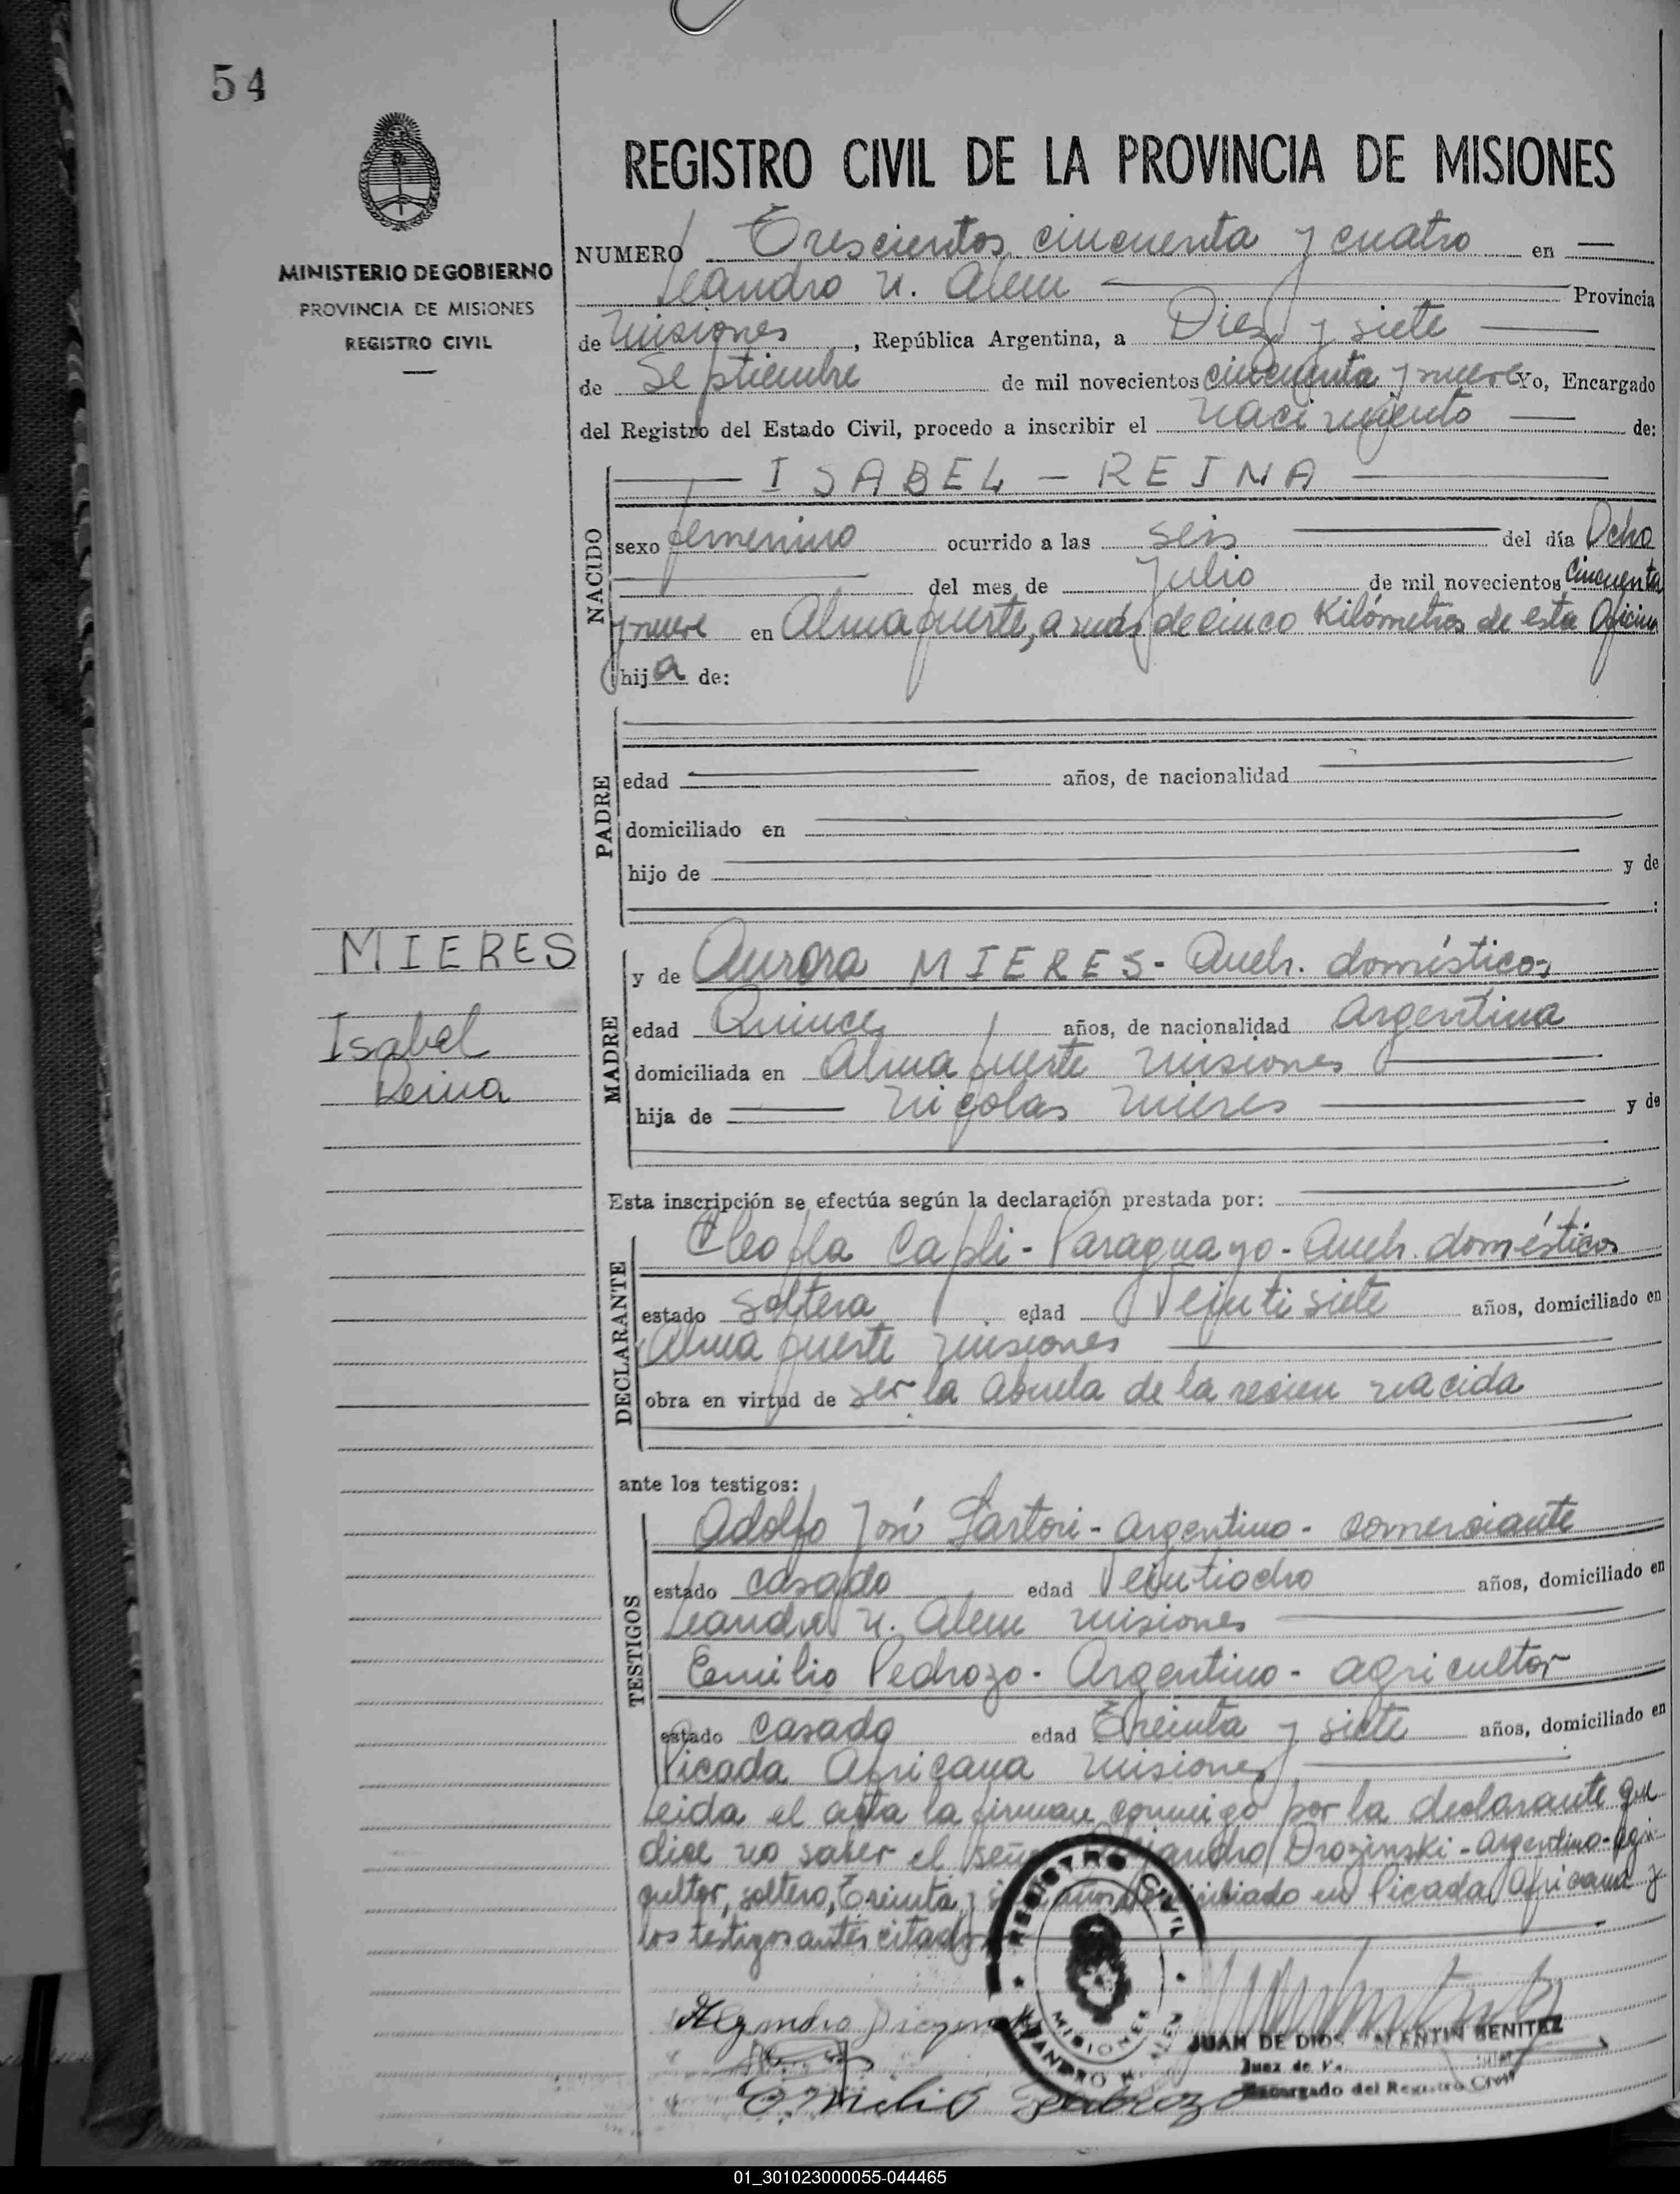 54
MINISTERIO DE GOBIERNO
PROVINCIA DE MISIONES
REGISTRO CIVIL
REGISTRO CIVIL DE LA PROVINCIA DE MISIONES
NUMERO Trescientos cincuenta y cuatro en
Leandro N. Alem Provincia
de Misiones, República Argentina, a Diez y siete
de Septiembre de mil novecientos cincuenta y nueve Yo, Encargado
del Registro del Estado Civil, procedo a inscribir el nacimiento de:
NACIDO
ISABEL - REINA
sexo femenino ocurrido a las seis del día Ocho
del mes de Julio de mil novecientos cincuenta
y nueve en Almafuerte, a más de cinco Kilómetros de esta Oficina
hija de:
PADRE
edad años, de nacionalidad
domiciliado en
hijo de y de
:
MIERES
Isabel
Reina
MADRE
y de Aurora MIERES - Queh. domésticos
edad Quince años, de nacionalidad Argentina
domiciliada en Alma fuerte Misiones
hija de Nicolas Mieres y de
Esta inscripción se efectúa según la declaración prestada por:
DECLARANTE
Cleofla Capli - Paraguayo - Queh. domésticos
estado soltera edad Veintisiete años, domiciliado en
Alma fuerte Misiones
obra en virtud de ser la abuela de la recien nacida
ante los testigos:
TESTIGOS
Adolfo José Sartori - argentino - comerciante
estado casado edad Veintiocho años, domiciliado en
Leandro N. Alem Misiones
Emilio Pedrozo - Argentino - agricultor
estado casado edad Treinta y siete años, domiciliado en
Picada Africana Misiones
Leida el acta la firman conmigo por la declarante que
dice no saber el señor Alejandro Drozinski - Argentino - agri-
cultor, soltero, Treinta y años domiciliado en Picada Africana y
los testigos antes citados
REGISTRO CIVIL
MISIONES
LEANDRO N. ALEM
JUAN DE DIOS VALENTIN BENITEZ
Juez de
Encargado del Registro Civil
Emilio Pedrozo
01_301023000055-044465